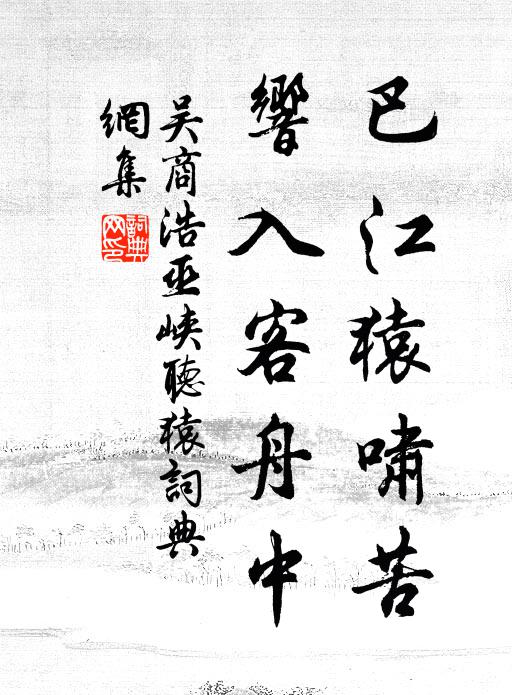 巴江猿嘯苦
響入客舟中
吳商浩巫峽聽猿詞典
網集
詞典網印